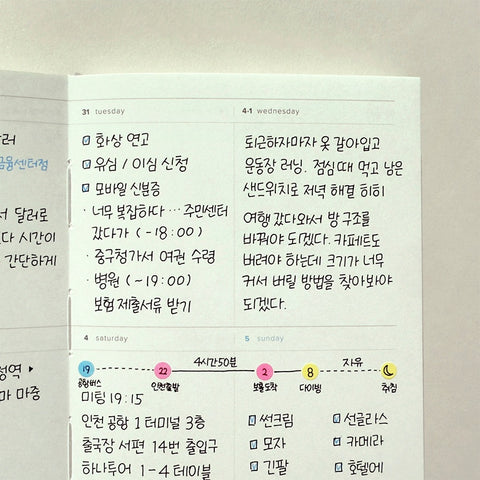 금융센터점
서 달러로
다 시간이
간단하게
마 마중
31 tuesday
화상 연고
유심 / 이심 신청
모바일 신분증
· 너무 복잡하다 … 주민센터
갔다가 (~18:00)
· 중구청가서 여권 수령
· 병원 (~19:00)
보험 제출서류 받기
4·1 wednesday
퇴근하자마자 옷 갈아입고
운동장 러닝. 점심때 먹고 남은
샌드위치로 저녁 해결 히히
여행 갔다와서 방 구조를
바꿔야 되겠다. 카페트도
버려야 하는데 크기가 너무
커서 버릴 방법을 찾아봐야
되겠다.
4 saturday
5 sunday
4시간50분
자유
19 22 2 8
공항버스 인천출발 보홀도착 다이빙 취침
미팅 19:15
인천 공항 1 터미널 3층
출국장 서편 14번 출입구
하나투어 1-4 테이블
썬크림
모자
긴팔
선글라스
카메라
호텔에